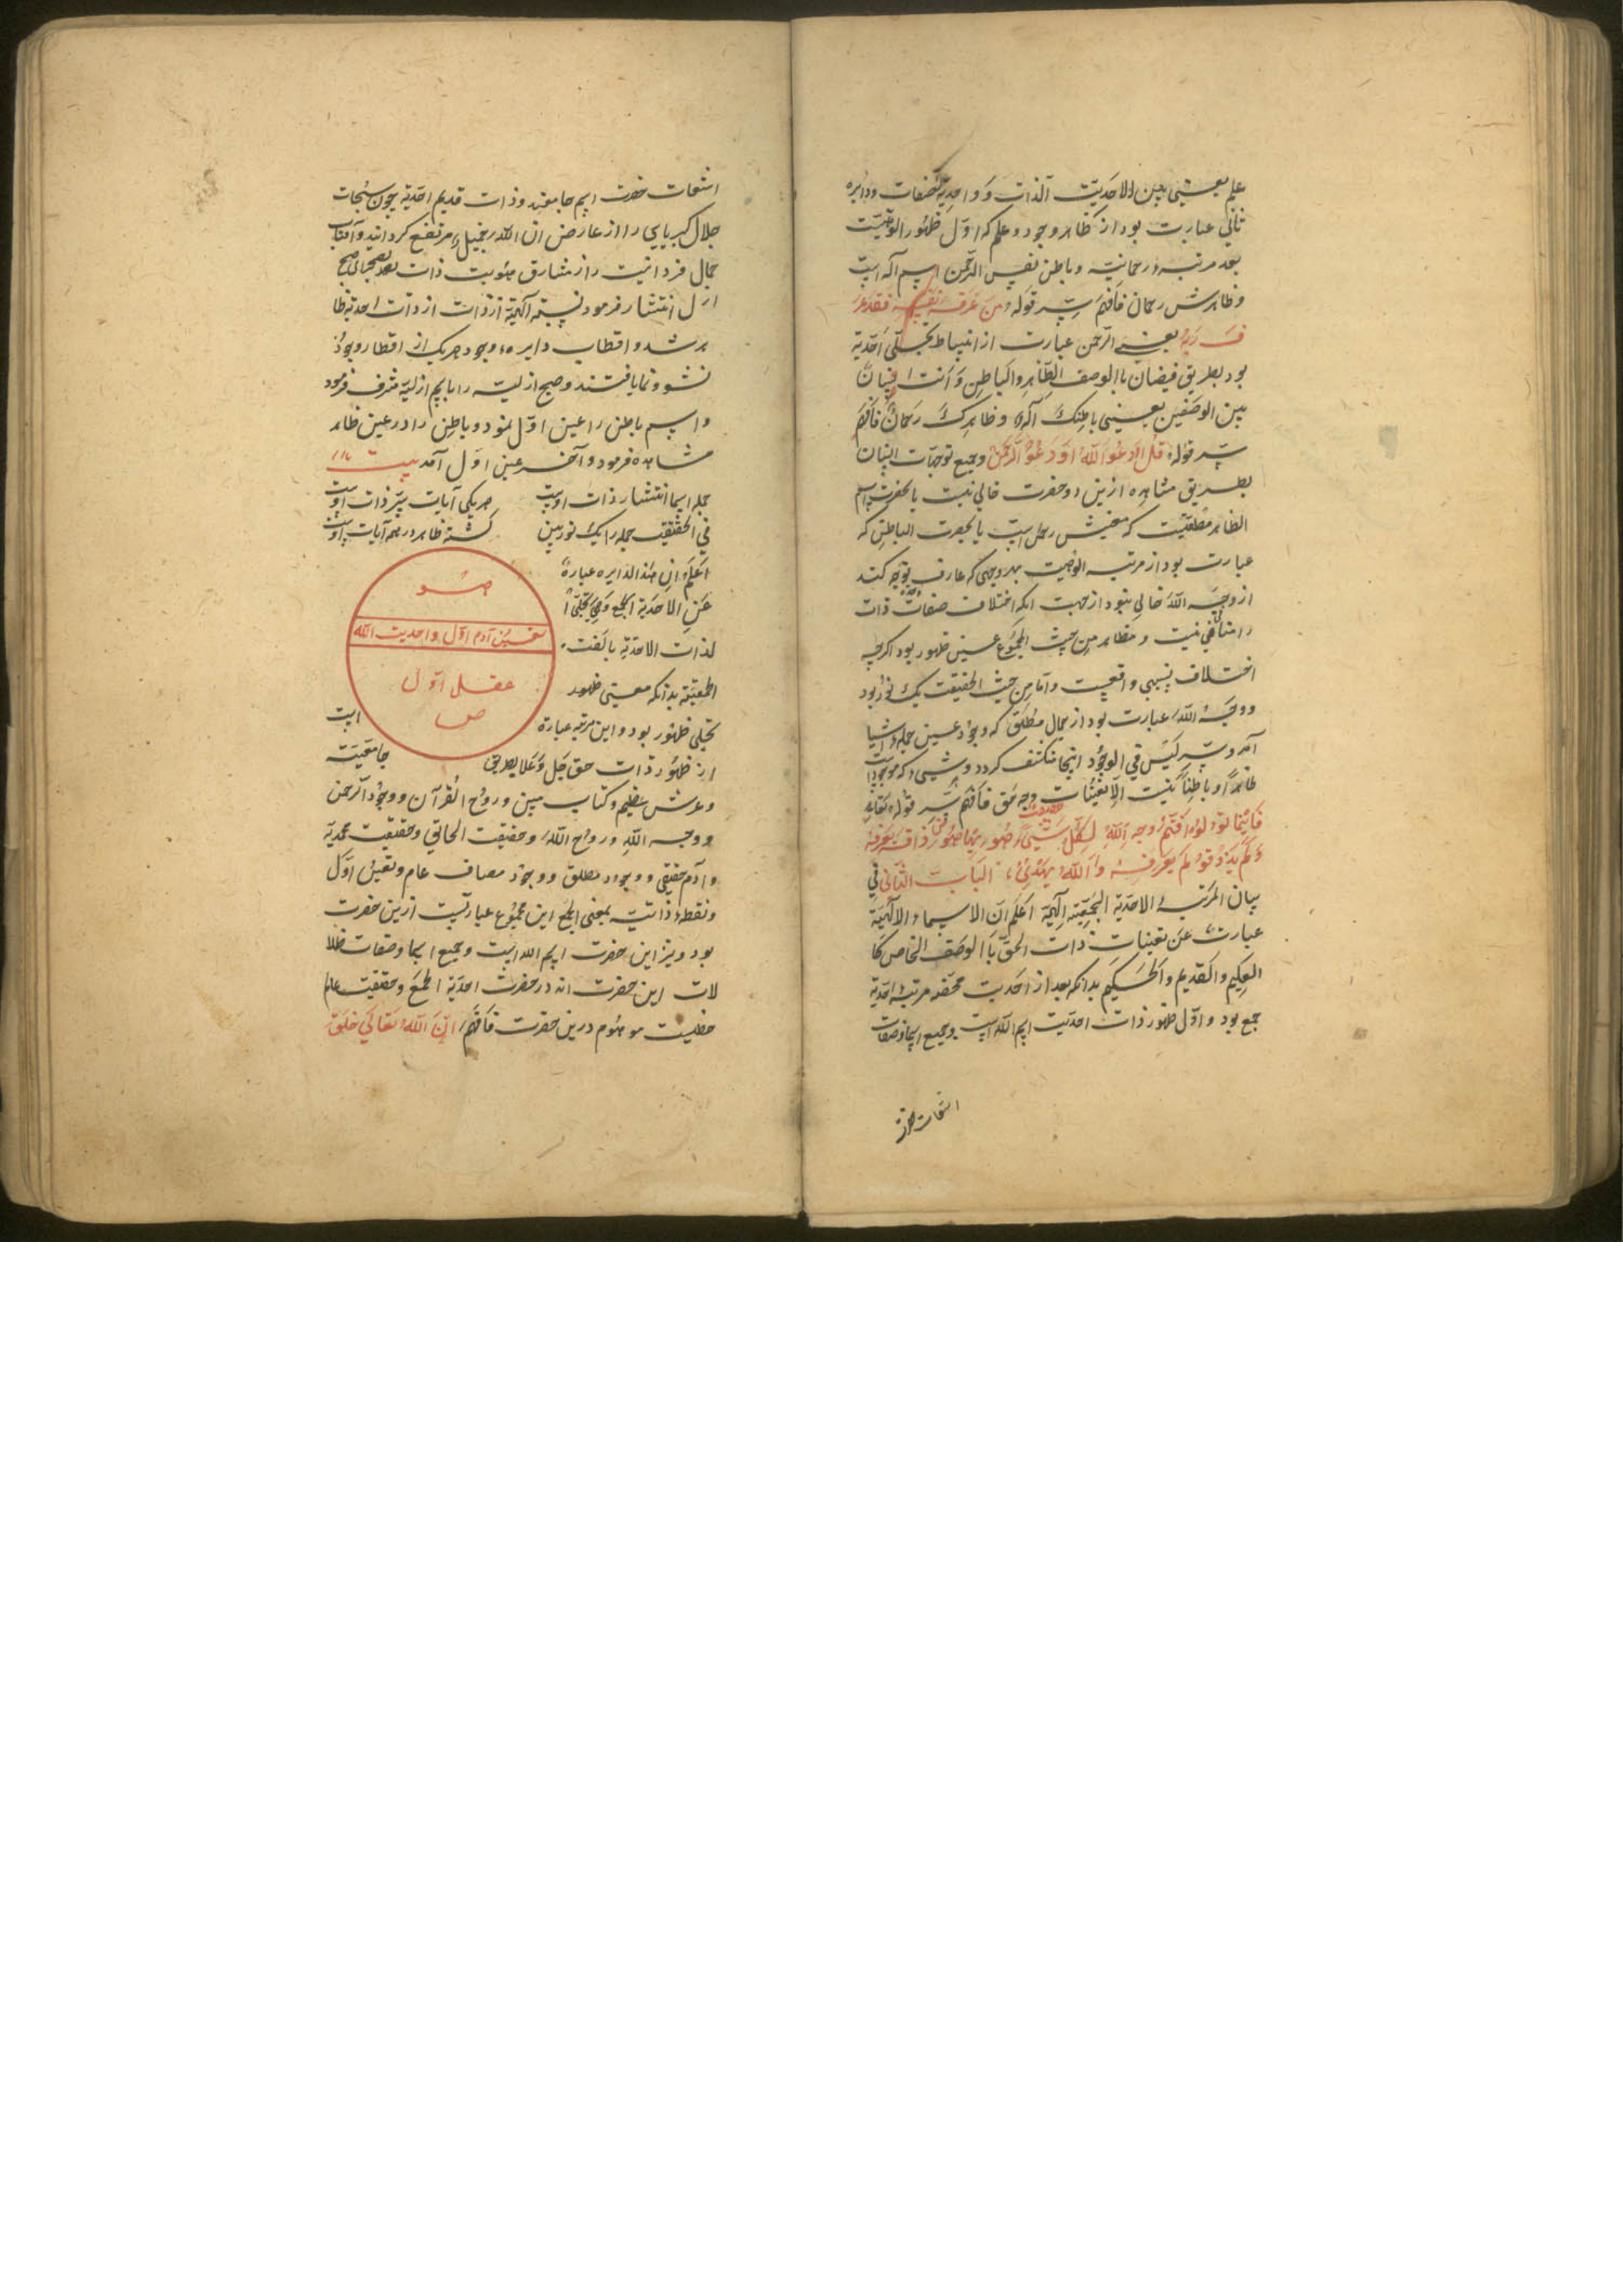 علم یعنی بین الاحدیت الذات و واحدیة الصفات و دایره
ثانی عبارت بود از ظاهر وجود و علم که اول ظهور الوهیت
بعد مرتبهٔ رحمانیه و باطن نفس الرحمن اسم آله است
و ظاهرش رحمان فافهم سِر قوله من عرف نفسه فقد عر
ف ربه یعنی الرحمن عبارت از انبساط تجلی احدیة
بود بطریق فیضان باالوصف الظاهر والباطن و انت انسان
بین الوصفین یعنی باطنک آله و ظاهرک رحمان فافهم
سِر قوله قل ادعوا الله او ادعوا الرحمن و جمیع توجهات انسان
بطریق مشاهده ازین دو حضرت خالی نیست یا بحضرت اسم
الظاهر که رحمن است یا بحضرت الباطن که
عبارت بود از مرتبه الوهیت بهر وجهی که عارف توجه کند
از وجه الله خالی نبود از جهت انکه اختلاف صفات ذات
را منافی نیست و مظاهر من حیث المجموع عین ظهور بود اکرچه
اختلاف نسبی واقعیست و اما من حیث الحقیقت یک نور بود
و وجه الله عبارت بود از جمال مطلق که وجود عین جمله اشیا
آمد و سِر لیس فی الوجود اینجا منکشف کردد و شیء که موجود است
ظاهراً و باطناً نیست الا تعینات وجه حق فافهم سِر قوله تعالی
فاینما تولوا فثم وجه الله لکل شیء حقیقت ظهور فمن ذاق یعرفه
و لم یذوقوا لم یعرفه و الله یهدی الباب الثانی فی
بیان المرتبه الاحدیة الجمعیة الهیة اعلم ان الاسماء الالهیة
عبارت عن تعینات ذات الحق باالوصف الخاص کا
العلیم و القدیم و الحکیم بدانکه بعد از احدیت محضه مرتبه احدیة
جمع بود و اول ظهور ذات احدیت اسم الله است و جمیع اسما و صفات
اشعات حضرت
اشعات حضرت اسم جامعند و ذات قدیم احدیة چون سبحات
جلال کبریایی را از عارض ان الله جمیل مرتفع کردانید و آفتاب
جمال فردانیت را از مشارق هویت ذات بعد صبح
ازل انتشار فرمود نسبة الهیة از ذات احدیة ظا
هر شد و اقطاب دایره وجود هریک از اقطار وجود
نشو و نما یافتند و صبح ازلیه را باسم ازلیة مشرف فرمود
و اسم باطن را عین اول نمود و باطن را در عین ظاهر
مشاهده فرمود و آخر عین اول آمد بیت
جمله اسما انتشار ذات اوست هریکی آیات سِر ذات اوست
فی الحقیقت جمله را یک نور بین کشته ظاهر در همه آیات اوست
اعلم ان هذا الدایره عبارة
عن الاحدیة الجمع و هی تجلی
لذات الاحدیة
بدانکه معنی ظهور
تجلی ظهور بود و این مرتبه عبارة است
از ظهور ذات حق جل و علا بطریق جامعیت
هو
تعین آدم اول واحدیت الله
عقل اول
ص
و عرش عظیم و کتاب مبین و روح القرآن و وجود الرحمن
و وجه الله و روح الله و حقیقت الحقایق و حقیقت محمدیة
و آدم حقیقی و وجود مطلق و وجود مضاف عام و تعین اول
و نقطه ذاتیه بمعنی الجمع این مجموع عبارتست ازین حضرت
بود و نیز این حضرت اسم الله است و جمیع اسما و صفات ظلا
لات این حضرت اند در حضرت احدیة الجمع و حقیقت عالم
ظلیست موهوم درین حضرت فافهم ان الله تعالی خلق